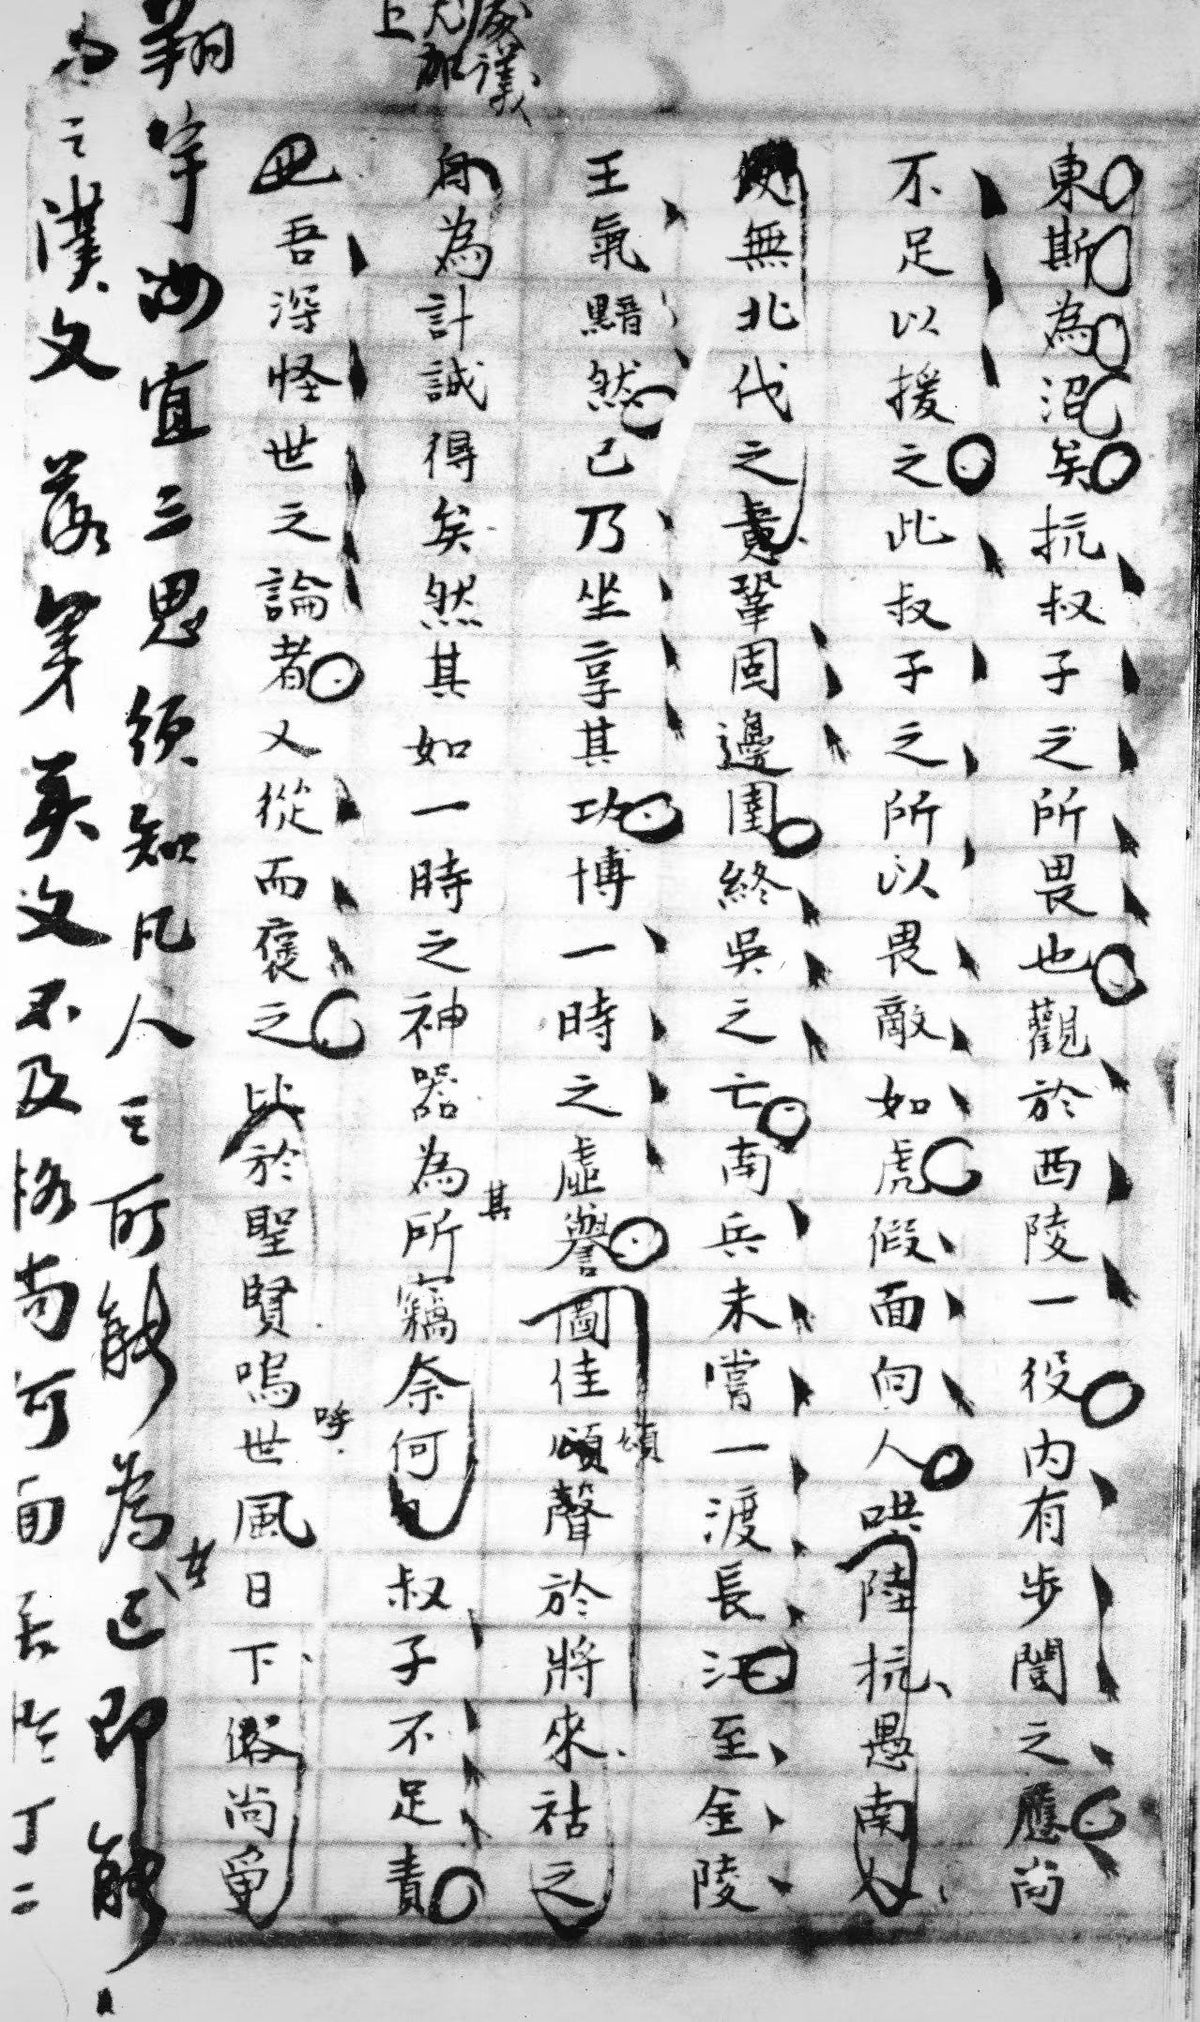 東斯為沼矣抗叔子之所畏也觀於西陵一役内有步闡之應尚
不足以援之此叔子之所以畏敵如虎假面向人哄陸抗愚南人
使無北伐之責鞏固邊圉終吳之亡南兵未嘗一渡長江至金陵
王氣黯然已乃坐享其功博一時之虛譽圖佳頌聲於將來祜之
頌
自為計誠得矣然其如一時之神器為所竊奈何 叔子不足責
其
吾深怪世之論者又從而褒之 於聖賢嗚世風日下俗尚
呼
議
尤加
上
宇 宜三思須知凡人之所能為 即能
在
之漢文 落第英文不及格尚何面 丁二